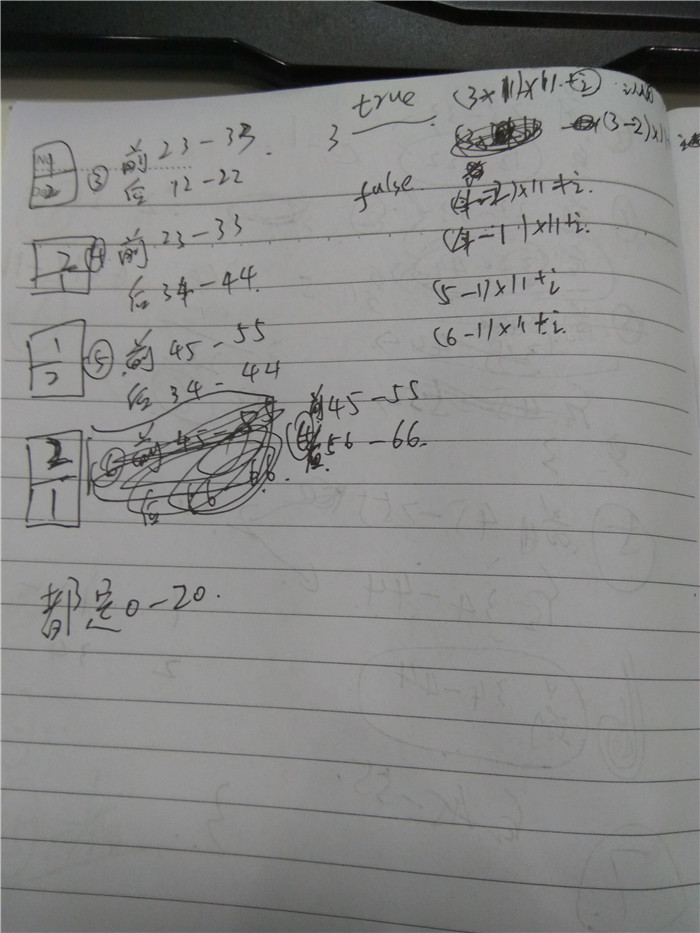 3 true (3×11)×11+i
(3-2)×1
1 2 ③ 前 23-33.
后 12-22
false. (4-2)×11+i.
2 1 ④ 前 23-33
(4-1)×11+i.
后 34-44.
(5-1)×11+i
1 2 ⑤ 前 45-55
(6-1)×11+i.
后 34-44
2 1 ⑥ 前 45-55
后 56-66.
都是0-20.